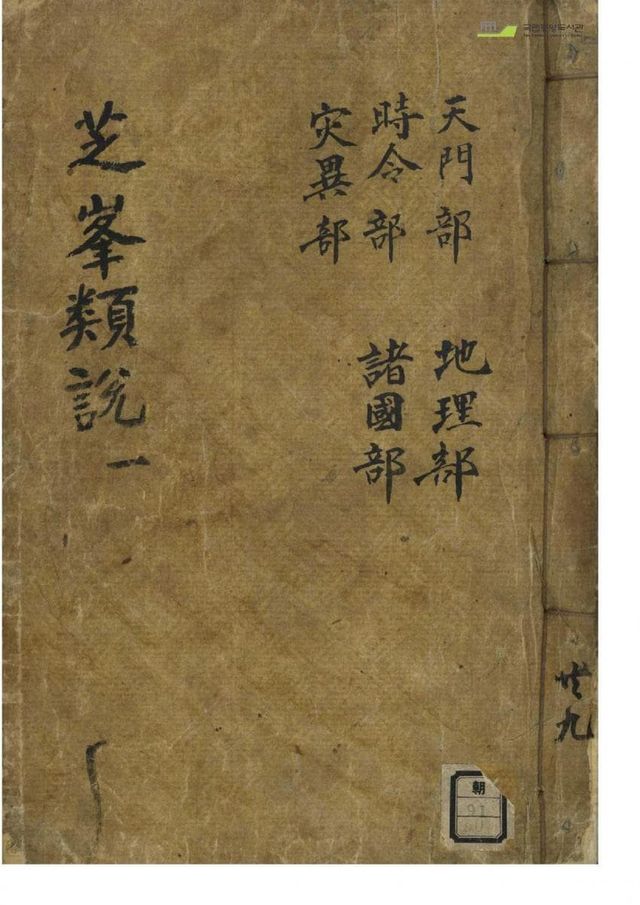 국립중앙도서관
天門部
地理部
時令部
諸國部
灾異部
芝峯類說 一
共九
朝
91